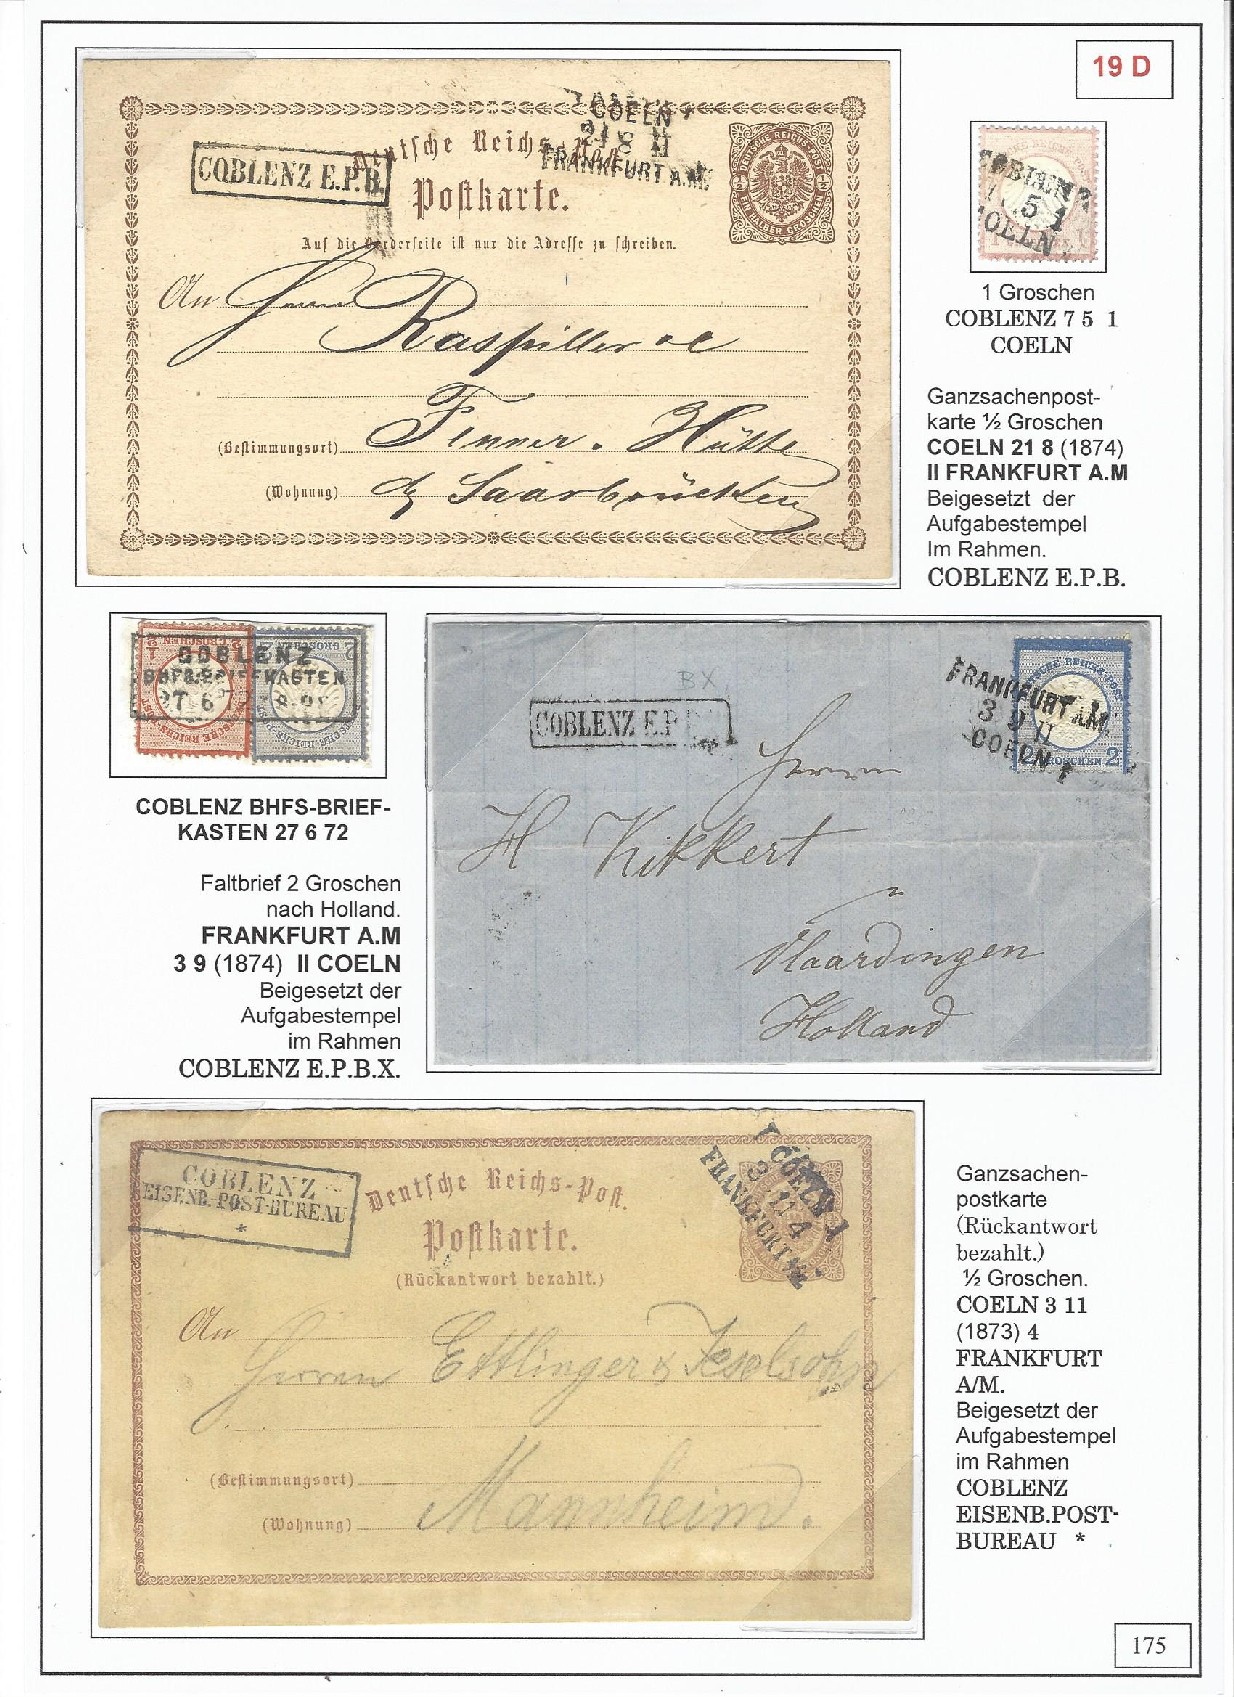 19 D
COBLENZ E.P.B.
COELN
21 8 II
FRANKFURT A.M.
Deutsche Reichs-Post
Postkarte.
Auf die Vorderseite ist nur die Adresse zu schreiben.
An Herrn Raspiller &c
Fenner. Hütte
(Bestimmungsort)
(Wohnung)
Saarbrücken
COBLENZ
5 1
COELN
1 Groschen
COBLENZ 7 5 1
COELN
Ganzsachenpost-
karte ½ Groschen
COELN 21 8 (1874)
II FRANKFURT A.M
Beigesetzt der
Aufgabestempel
Im Rahmen.
COBLENZ E.P.B.
COBLENZ
BHFS-BRIEFKASTEN
27 6
COBLENZ BHFS-BRIEF-
KASTEN 27 6 72
Faltbrief 2 Groschen
nach Holland.
FRANKFURT A.M
3 9 (1874) II COELN
Beigesetzt der
Aufgabestempel
im Rahmen
COBLENZ E.P.B.X.
BX
COBLENZ E.P.
FRANKFURT A.M.
3 9 II
COELN
Herrn
H Kikkert
Vlaardingen
Holland
COBLENZ
EISENB.-POST-BUREAU
*
COELN
3 11 4
FRANKFURT A/M.
Deutsche Reichs-Post.
Postkarte.
(Rückantwort bezahlt.)
An
Herren Ettlinger &
(Bestimmungsort)
Mannheim.
(Wohnung)
Ganzsachen-
postkarte
(Rückantwort
bezahlt.)
½ Groschen.
COELN 3 11
(1873) 4
FRANKFURT
A/M.
Beigesetzt der
Aufgabestempel
im Rahmen
COBLENZ
EISENB.POST-
BUREAU *
175